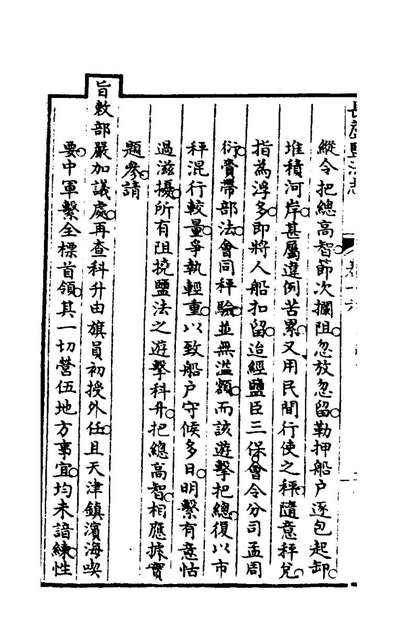 長蘆鹽法志 卷十六
縱令把總高智節次攔阻忽放忽留勒押船戶逐包起卸
堆積河岸甚屬違例苦累又用民間行使之秤隨意秤兌
指為浮多即將人船扣留迨經鹽臣三保會令分司孟周
衍賫帶部法會同秤驗並無溢額而該遊擊把總復以市
秤混行較量爭執輕重以致船戶守候多日明繫有意怙
過滋擾所有阻撓鹽法之遊擊科升把總高智相應據實
題參請
旨敕部嚴加議處再查科升由旗員初授外任且天津鎮濱海喫
要中軍繫全標首領其一切營伍地方事宜均未諳練性